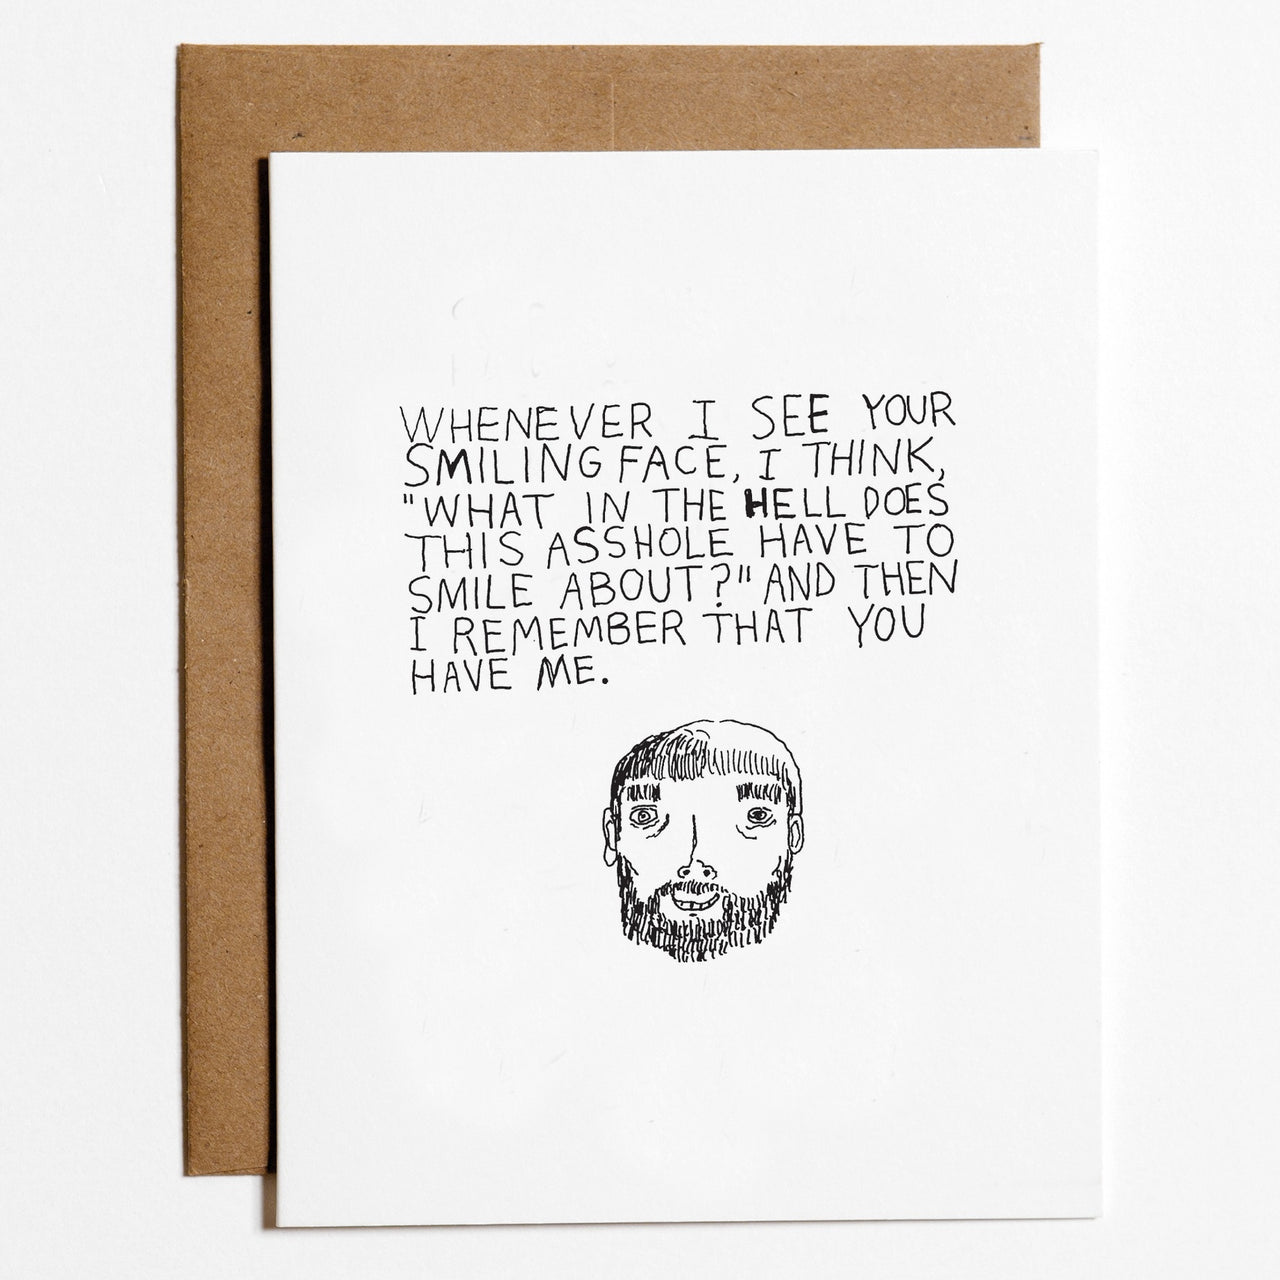 WHENEVER I SEE YOUR
SMILING FACE, I THINK,
"WHAT IN THE HELL DOES
THIS ASSHOLE HAVE TO
SMILE ABOUT?" AND THEN
I REMEMBER THAT YOU
HAVE ME.